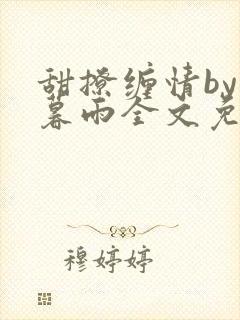 甜撩缠情by
暮雨全文免
穆婷婷